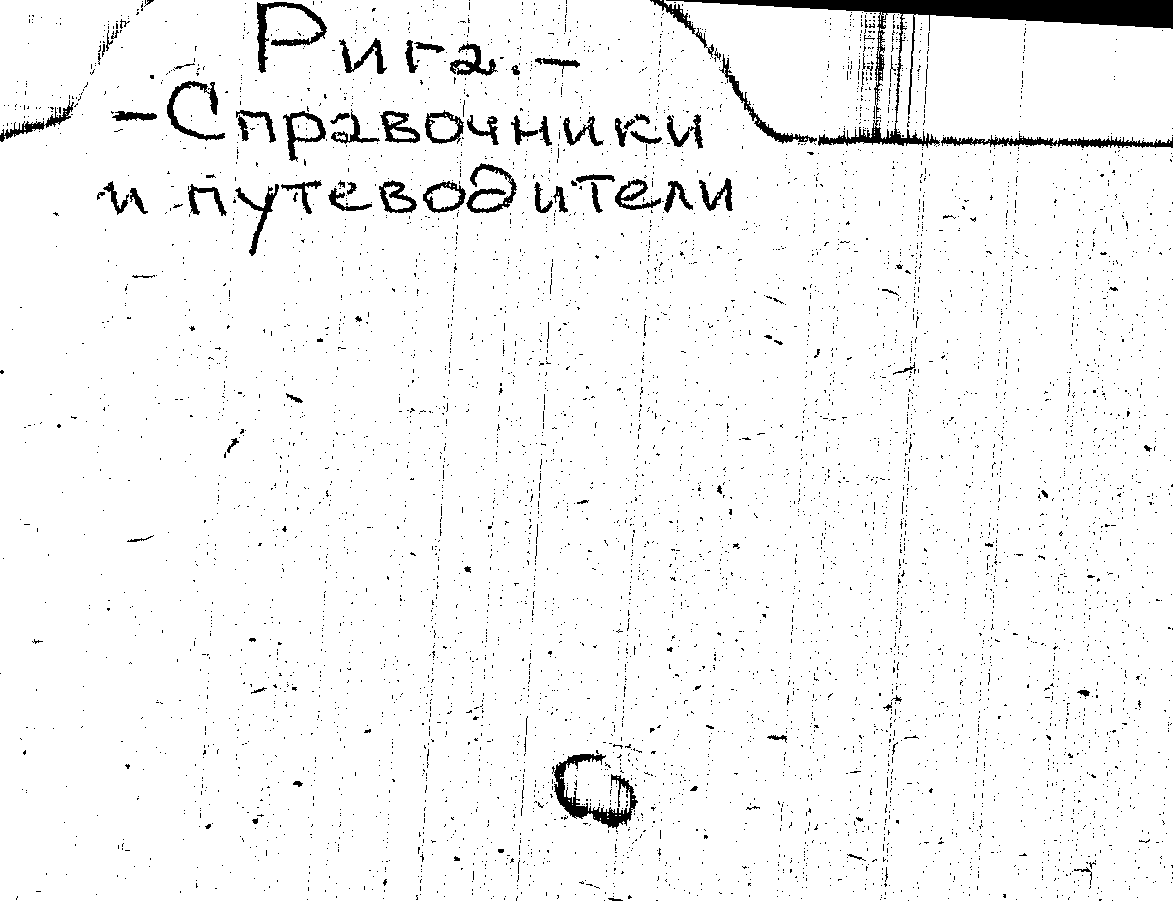 Рига. -
- Справочники
и путеводители